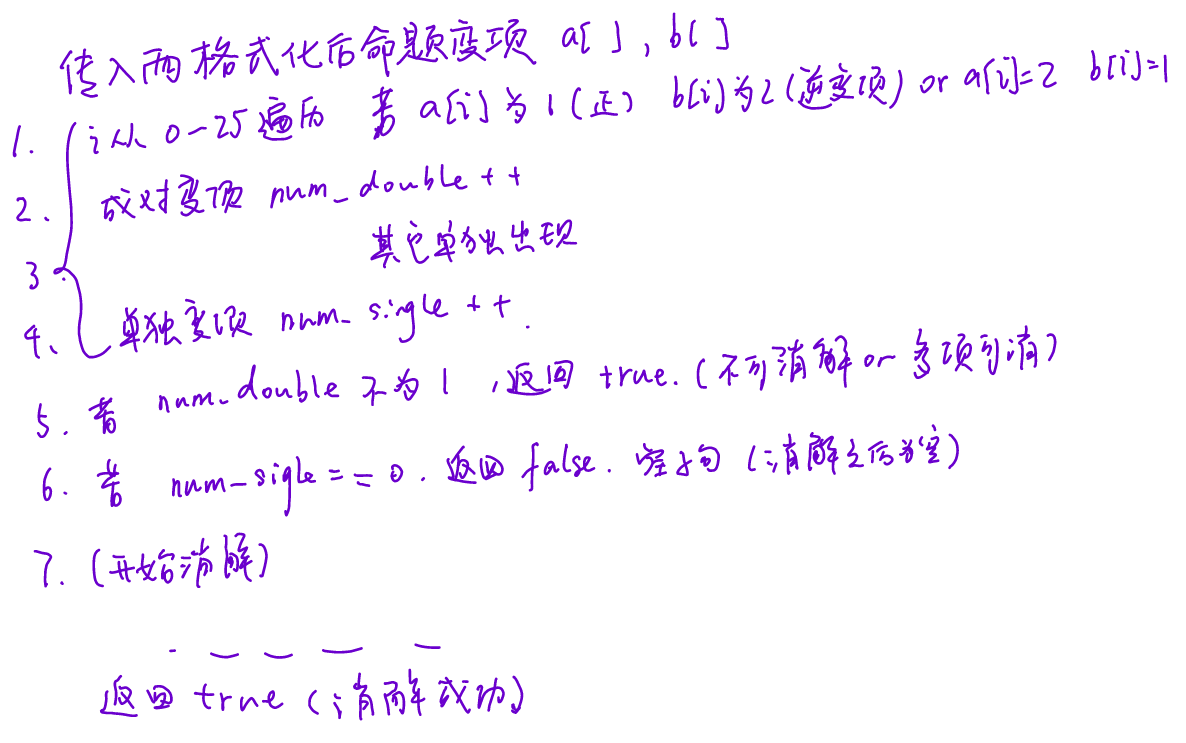 传入两格式化后命题变项 a[ ], b[ ]
1. i从 0-25遍历 若 a[i]为1(正) b[i]为2(逆变项) or a[i]=2 b[i]=1
2. 成对变项 num_double++
3. 其它单独出现
4、 单独变项 num_sigle++.
5. 若 num_double不为1,返回 true.(不可消解or多项可消)
6. 若 num_sigle==0.返回false.空子句(消解之后为空)
7. (开始消解)
返回 true (消解成功)